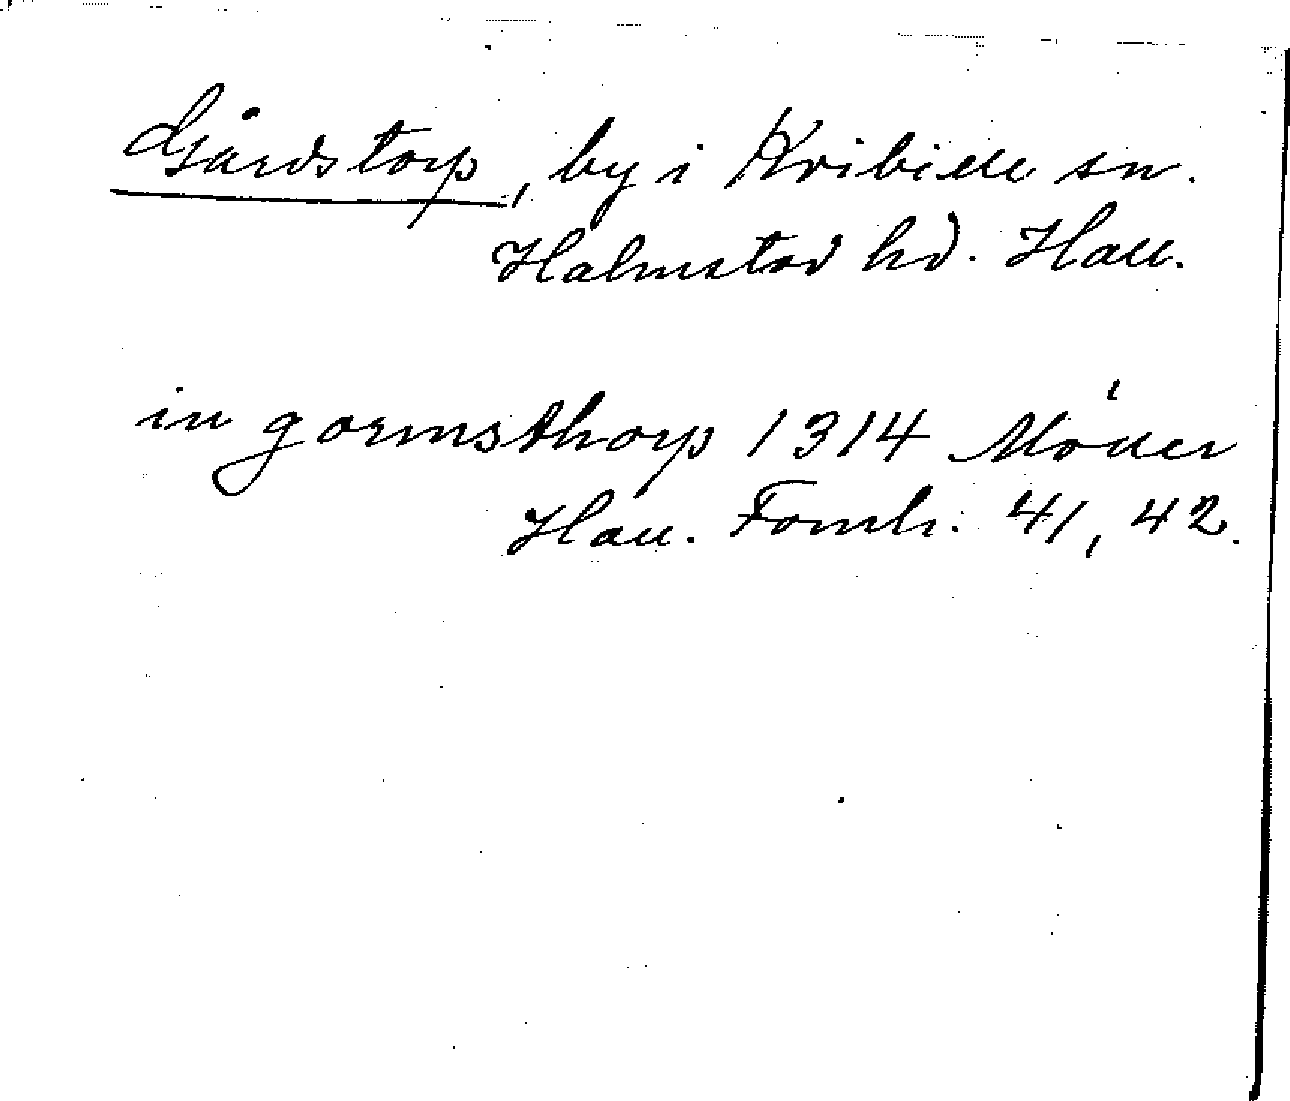 Gårdstorp, by i Kvibille sn.
Halmstad hd. Hall.
in gormsthorp 1314 Möller
Hall. Fornh. 41, 42.